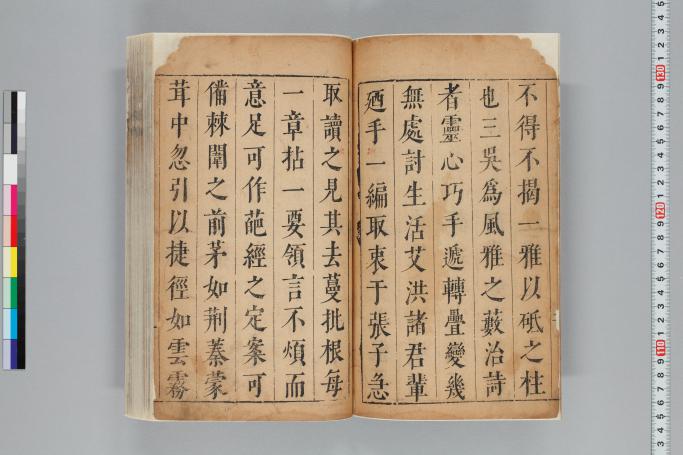 不得不揭一雅以砥之柱
也三吳爲風雅之藪治詩
者靈心巧手遞轉疊變幾
無處討生活艾洪諸君輩
廼手一編取衷于張子急
取讀之見其去蔓批根每
一章拈一要領言不煩而
意足可作葩經之定案可
備棘闈之前茅如荆蓁蒙
茸中忽引以捷徑如雲霧
130
120
110